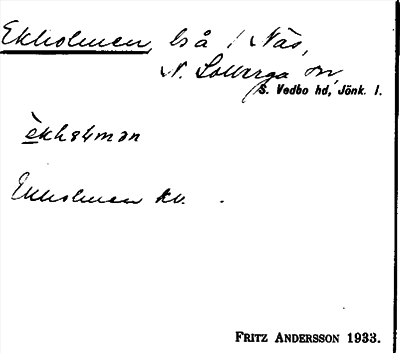 Ekholmen, lså / Näs,
N. Solberga sn,
S. Vedbo hd, Jönk. l.
Ekholmen kv.
FRITZ ANDERSSON 1933.